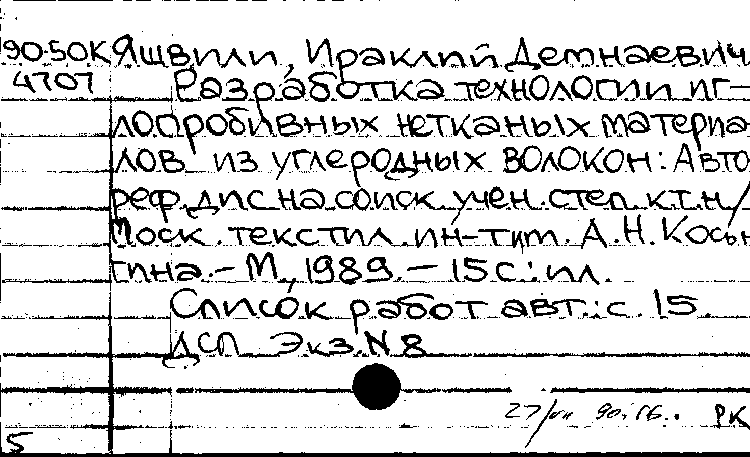 90.50К Яшвили, Ираклий Демнаевич
4707 Разработка технологии иг-
лопробивных нетканых материа
лов из углеродных волокон: Авто
реф. дис на соиск учен. степ к.т.н/
Моск. текстил. ин-т им. А.Н. Косы
гина. - М., 1989. - 15 с.: ил.
Список работ авт.: с. 15.
ДСП Экз. N 8
90.16. РК
5